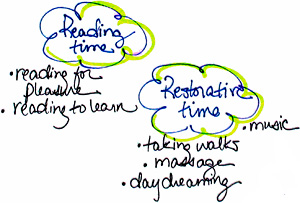 Reading
time
• reading for
pleasure
• reading to learn
Restorative
time
• music
• taking walks
• massage
• daydreaming